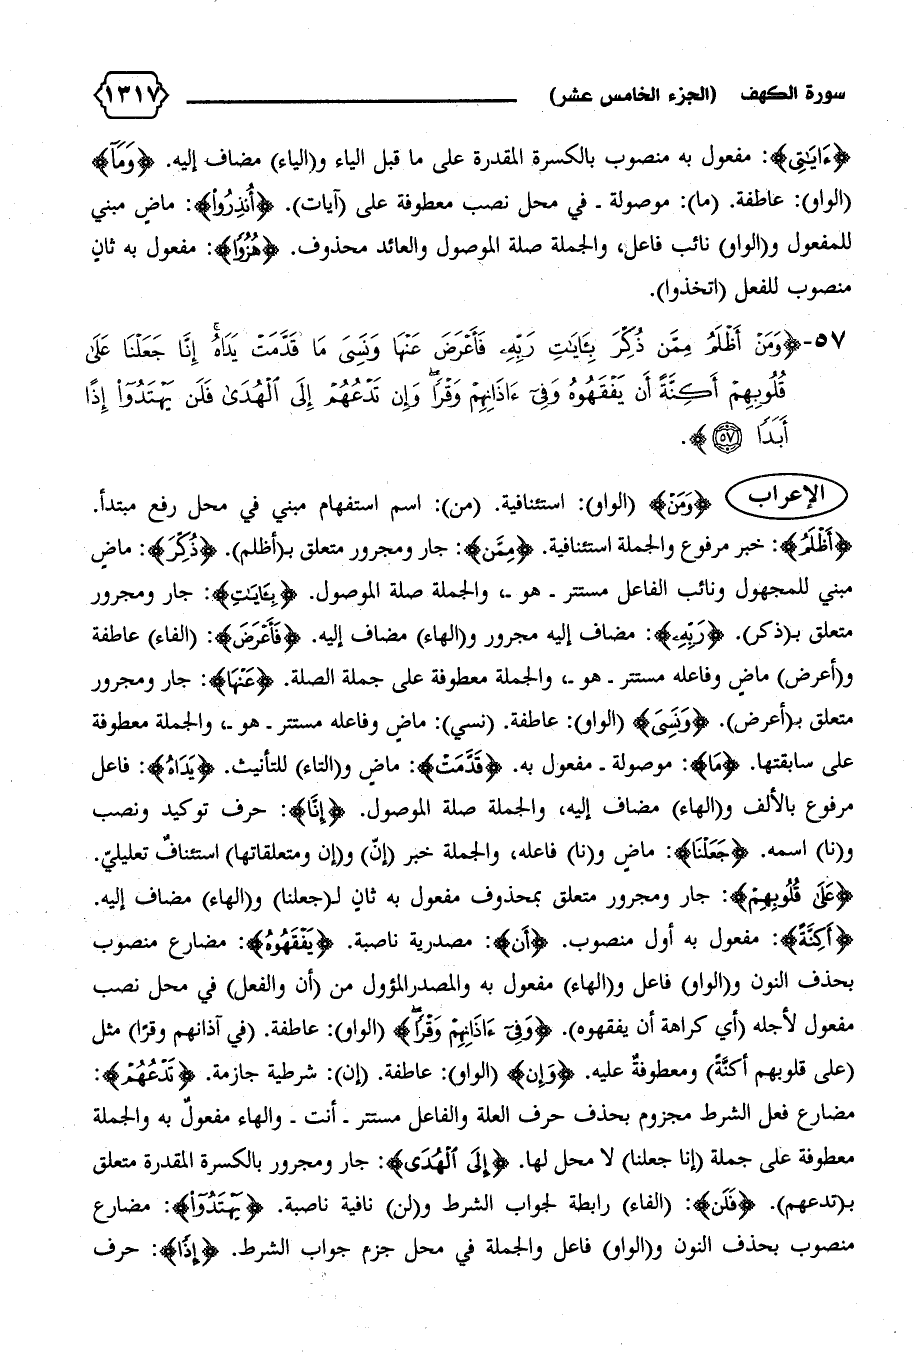 سورة الكهف (الجزء الخامس عشر) ١٣١٧
﴿ءَايَٰتِي﴾: مفعول به منصوب بالكسرة المقدرة على ما قبل الياء و(الياء) مضاف إليه. ﴿وَمَآ﴾
(الواو): عاطفة. (ما): موصولة ـ في محل نصب معطوفة على (آيات). ﴿أُنذِرُوا۟﴾: ماضٍ مبني
للمفعول و(الواو) نائب فاعل، والجملة صلة الموصول والعائد محذوف. ﴿هُزُوًا﴾: مفعول به ثانٍ
منصوب للفعل (اتخذوا).
٥٧-﴿وَمَنْ أَظْلَمُ مِمَّن ذُكِّرَ بِـَٔايَٰتِ رَبِّهِۦ فَأَعْرَضَ عَنْهَا وَنَسِىَ مَا قَدَّمَتْ يَدَاهُ ۚ إِنَّا جَعَلْنَا عَلَىٰ
قُلُوبِهِمْ أَكِنَّةً أَن يَفْقَهُوهُ وَفِىٓ ءَاذَانِهِمْ وَقْرًا ۖ وَإِن تَدْعُهُمْ إِلَى ٱلْهُدَىٰ فَلَن يَهْتَدُوٓا۟ إِذًا
أَبَدًا ٥٧﴾.
الإعراب ﴿وَمَنْ﴾ (الواو): استئنافية. (من): اسم استفهام مبني في محل رفع مبتدأ.
﴿أَظْلَمُ﴾: خبر مرفوع والجملة استئنافية. ﴿مِمَّن﴾: جار ومجرور متعلق بـ(أظلم). ﴿ذُكِّرَ﴾: ماضٍ
مبني للمجهول ونائب الفاعل مستتر ـ هو ـ، والجملة صلة الموصول. ﴿بِـَٔايَٰتِ﴾: جار ومجرور
متعلق بـ(ذكر). ﴿رَبِّهِۦ﴾: مضاف إليه مجرور و(الهاء) مضاف إليه. ﴿فَأَعْرَضَ﴾: (الفاء) عاطفة
و(أعرض) ماضٍ وفاعله مستتر ـ هو ـ، والجملة معطوفة على جملة الصلة. ﴿عَنْهَا﴾: جار ومجرور
متعلق بـ(أعرض). ﴿وَنَسِىَ﴾ (الواو): عاطفة. (نسي): ماضٍ وفاعله مستتر ـ هو ـ، والجملة معطوفة
على سابقتها. ﴿مَا﴾: موصولة ـ مفعول به. ﴿قَدَّمَتْ﴾: ماضٍ و(التاء) للتأنيث. ﴿يَدَاهُ﴾: فاعل
مرفوع بالألف و(الهاء) مضاف إليه، والجملة صلة الموصول. ﴿إِنَّا﴾: حرف توكيد ونصب
و(نا) اسمه. ﴿جَعَلْنَا﴾: ماض و(نا) فاعله، والجملة خبر (إنّ) و(إن ومتعلقاتها) استئنافٌ تعليليّ.
﴿عَلَىٰ قُلُوبِهِمْ﴾: جار ومجرور متعلق بمحذوف مفعول به ثانٍ لـ(جعلنا) و(الهاء) مضاف إليه.
﴿أَكِنَّةً﴾: مفعول به أول منصوب. ﴿أَن﴾: مصدرية ناصبة. ﴿يَفْقَهُوهُ﴾: مضارع منصوب
بحذف النون و(الواو) فاعل و(الهاء) مفعول به والمصدرالمؤول من (أن والفعل) في محل نصب
مفعول لأجله (أي كراهة أن يفقهوه). ﴿وَفِىٓ ءَاذَانِهِمْ وَقْرًا ۖ﴾ (الواو): عاطفة. (في آذانهم وقرًا) مثل
(على قلوبهم أكنَّةً) ومعطوفةٌ عليه. ﴿وَإِن﴾ (الواو): عاطفة. (إن): شرطية جازمة. ﴿تَدْعُهُمْ﴾:
مضارع فعل الشرط مجزوم بحذف حرف العلة والفاعل مستتر ـ أنت ـ والهاء مفعولٌ به والجملة
معطوفة على جملة (إنا جعلنا) لا محل لها. ﴿إِلَى ٱلْهُدَىٰ﴾: جار ومجرور بالكسرة المقدرة متعلق
بـ(تدعهم). ﴿فَلَن﴾: (الفاء) رابطة لجواب الشرط و(لن) نافية ناصبة. ﴿يَهْتَدُوٓا۟﴾: مضارع
منصوب بحذف النون و(الواو) فاعل والجملة في محل جزم جواب الشرط. ﴿إِذًا﴾: حرف